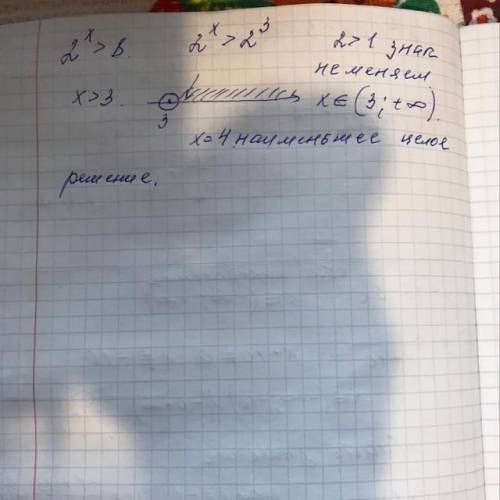 2^x > 8. 2^x > 2^3 2 > 1 знак
не меняем
x > 3. 3 x ∈ (3; +∞).
x = 4 наименьшее целое
решение.